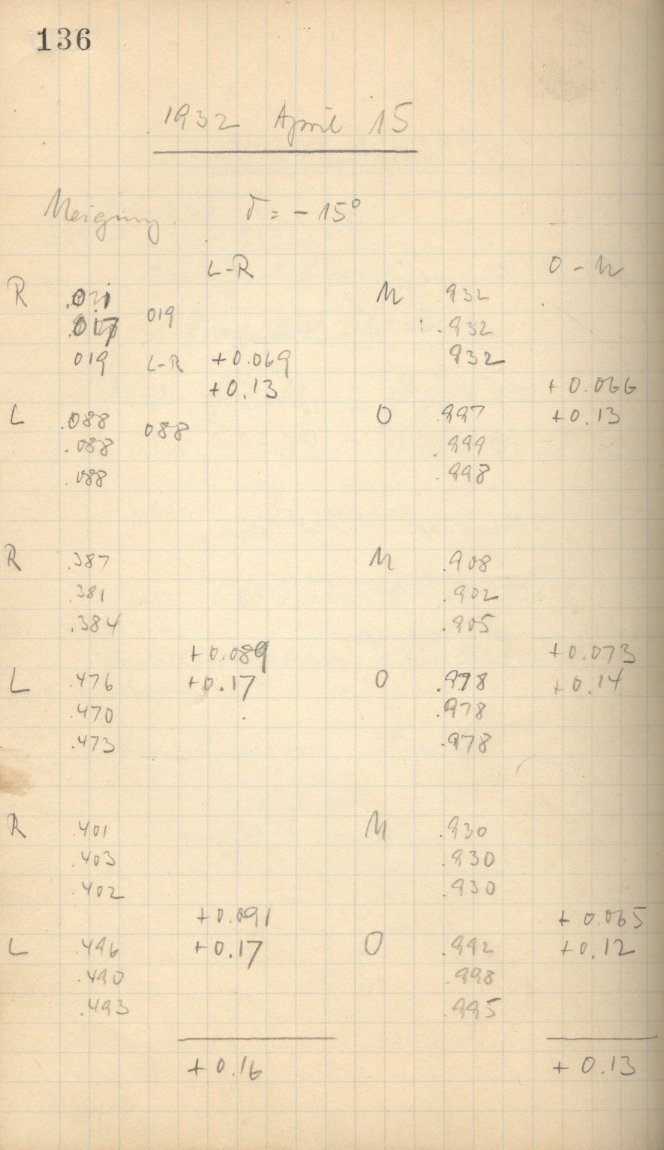 136
1932 April 15
Neigung. δ = -15°
L-R O-U
R .021 U 932
.017 019 .932
019 L-R +0.069 932
+0.13 +0.066
L .088 088 O .997 +0.13
.088 .999
.088 .998
R .387 U .908
.381 .902
.384 .905
+0.089 +0.073
L .476 +0.17 O .978 +0.14
.470 .978
.473 .978
R .401 U .930
.403 .930
.402 .930
+0.091 +0.065
L .496 +0.17 O .992 +0.12
.490 .998
.493 .995
+0.16 +0.13